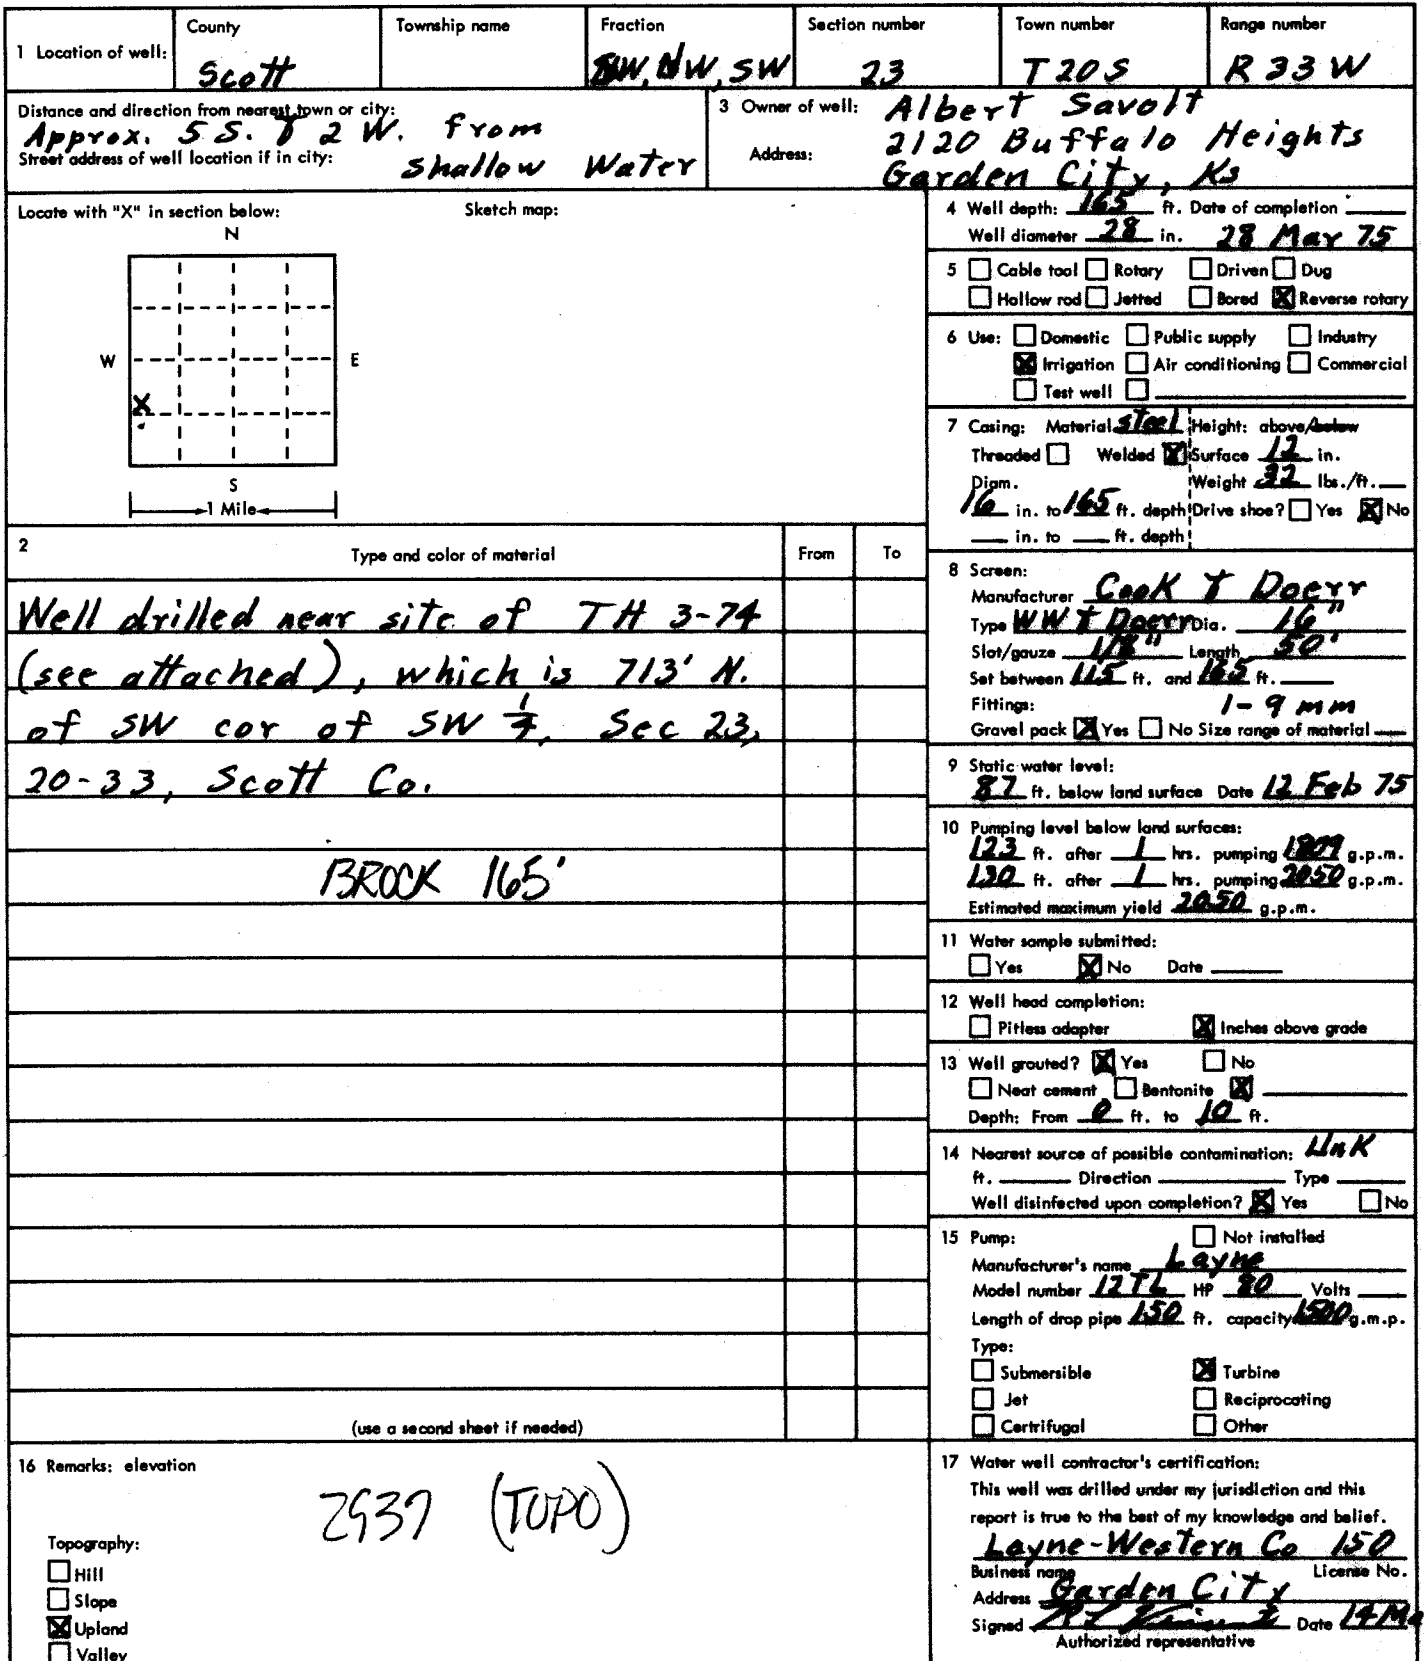 1 Location of well: County Township name Fraction Section number Town number Range number
Scott NW, SW 23 T20S R33W
Distance and direction from nearest town or city:
Approx. 5 S. & 2 W. from
Street address of well location if in city:
Shallow Water
3 Owner of well: Albert Savolt
Address: 2120 Buffalo Heights
Garden City, Ks
Locate with "X" in section below: Sketch map:
N
W E
X
S
1 Mile
4 Well depth: 165 ft. Date of completion
Well diameter 28 in. 28 Mar 75
5 Cable tool Rotary Driven Dug
Hollow rod Jetted Bored X Reverse rotary
6 Use: Domestic Public supply Industry
X Irrigation Air conditioning Commercial
Test well
7 Casing: Material steel Height: above/below
Threaded Welded X Surface 12 in.
Diam. Weight 32 lbs./ft.
16 in. to 165 ft. depth Drive shoe? Yes X No
in. to ft. depth
2 Type and color of material From To
Well drilled near site of TH 3-74
(see attached), which is 713' N.
of SW cor of SW 1/4, Sec 23,
20-33, Scott Co.
BROCK 165'
(use a second sheet if needed)
8 Screen:
Manufacturer Cook & Doerr
Type WW & Doerr Dia. 16"
Slot/gauze 1/8" Length 50'
Set between 115 ft. and 165 ft.
Fittings: 1-9 mm
Gravel pack X Yes No Size range of material
9 Static water level:
87 ft. below land surface Date 12 Feb 75
10 Pumping level below land surfaces:
123 ft. after 1 hrs. pumping 1809 g.p.m.
130 ft. after 1 hrs. pumping 2050 g.p.m.
Estimated maximum yield 2050 g.p.m.
11 Water sample submitted:
Yes X No Date
12 Well head completion:
Pitless adapter X Inches above grade
13 Well grouted? X Yes No
Neat cement Bentonite X
Depth: From 0 ft. to 10 ft.
14 Nearest source of possible contamination: Unk
ft. Direction Type
Well disinfected upon completion? X Yes No
15 Pump: Not installed
Manufacturer's name Layne
Model number 12TL HP 80 Volts
Length of drop pipe 150 ft. capacity 1500 g.m.p.
Type:
Submersible X Turbine
Jet Reciprocating
Certrifugal Other
16 Remarks: elevation
2937 (TOPO)
Topography:
Hill
Slope
X Upland
Valley
17 Water well contractor's certification:
This well was drilled under my jurisdiction and this
report is true to the best of my knowledge and belief.
Layne-Western Co 150
Business name License No.
Address Garden City
Signed Date 14 Ma
Authorized representative